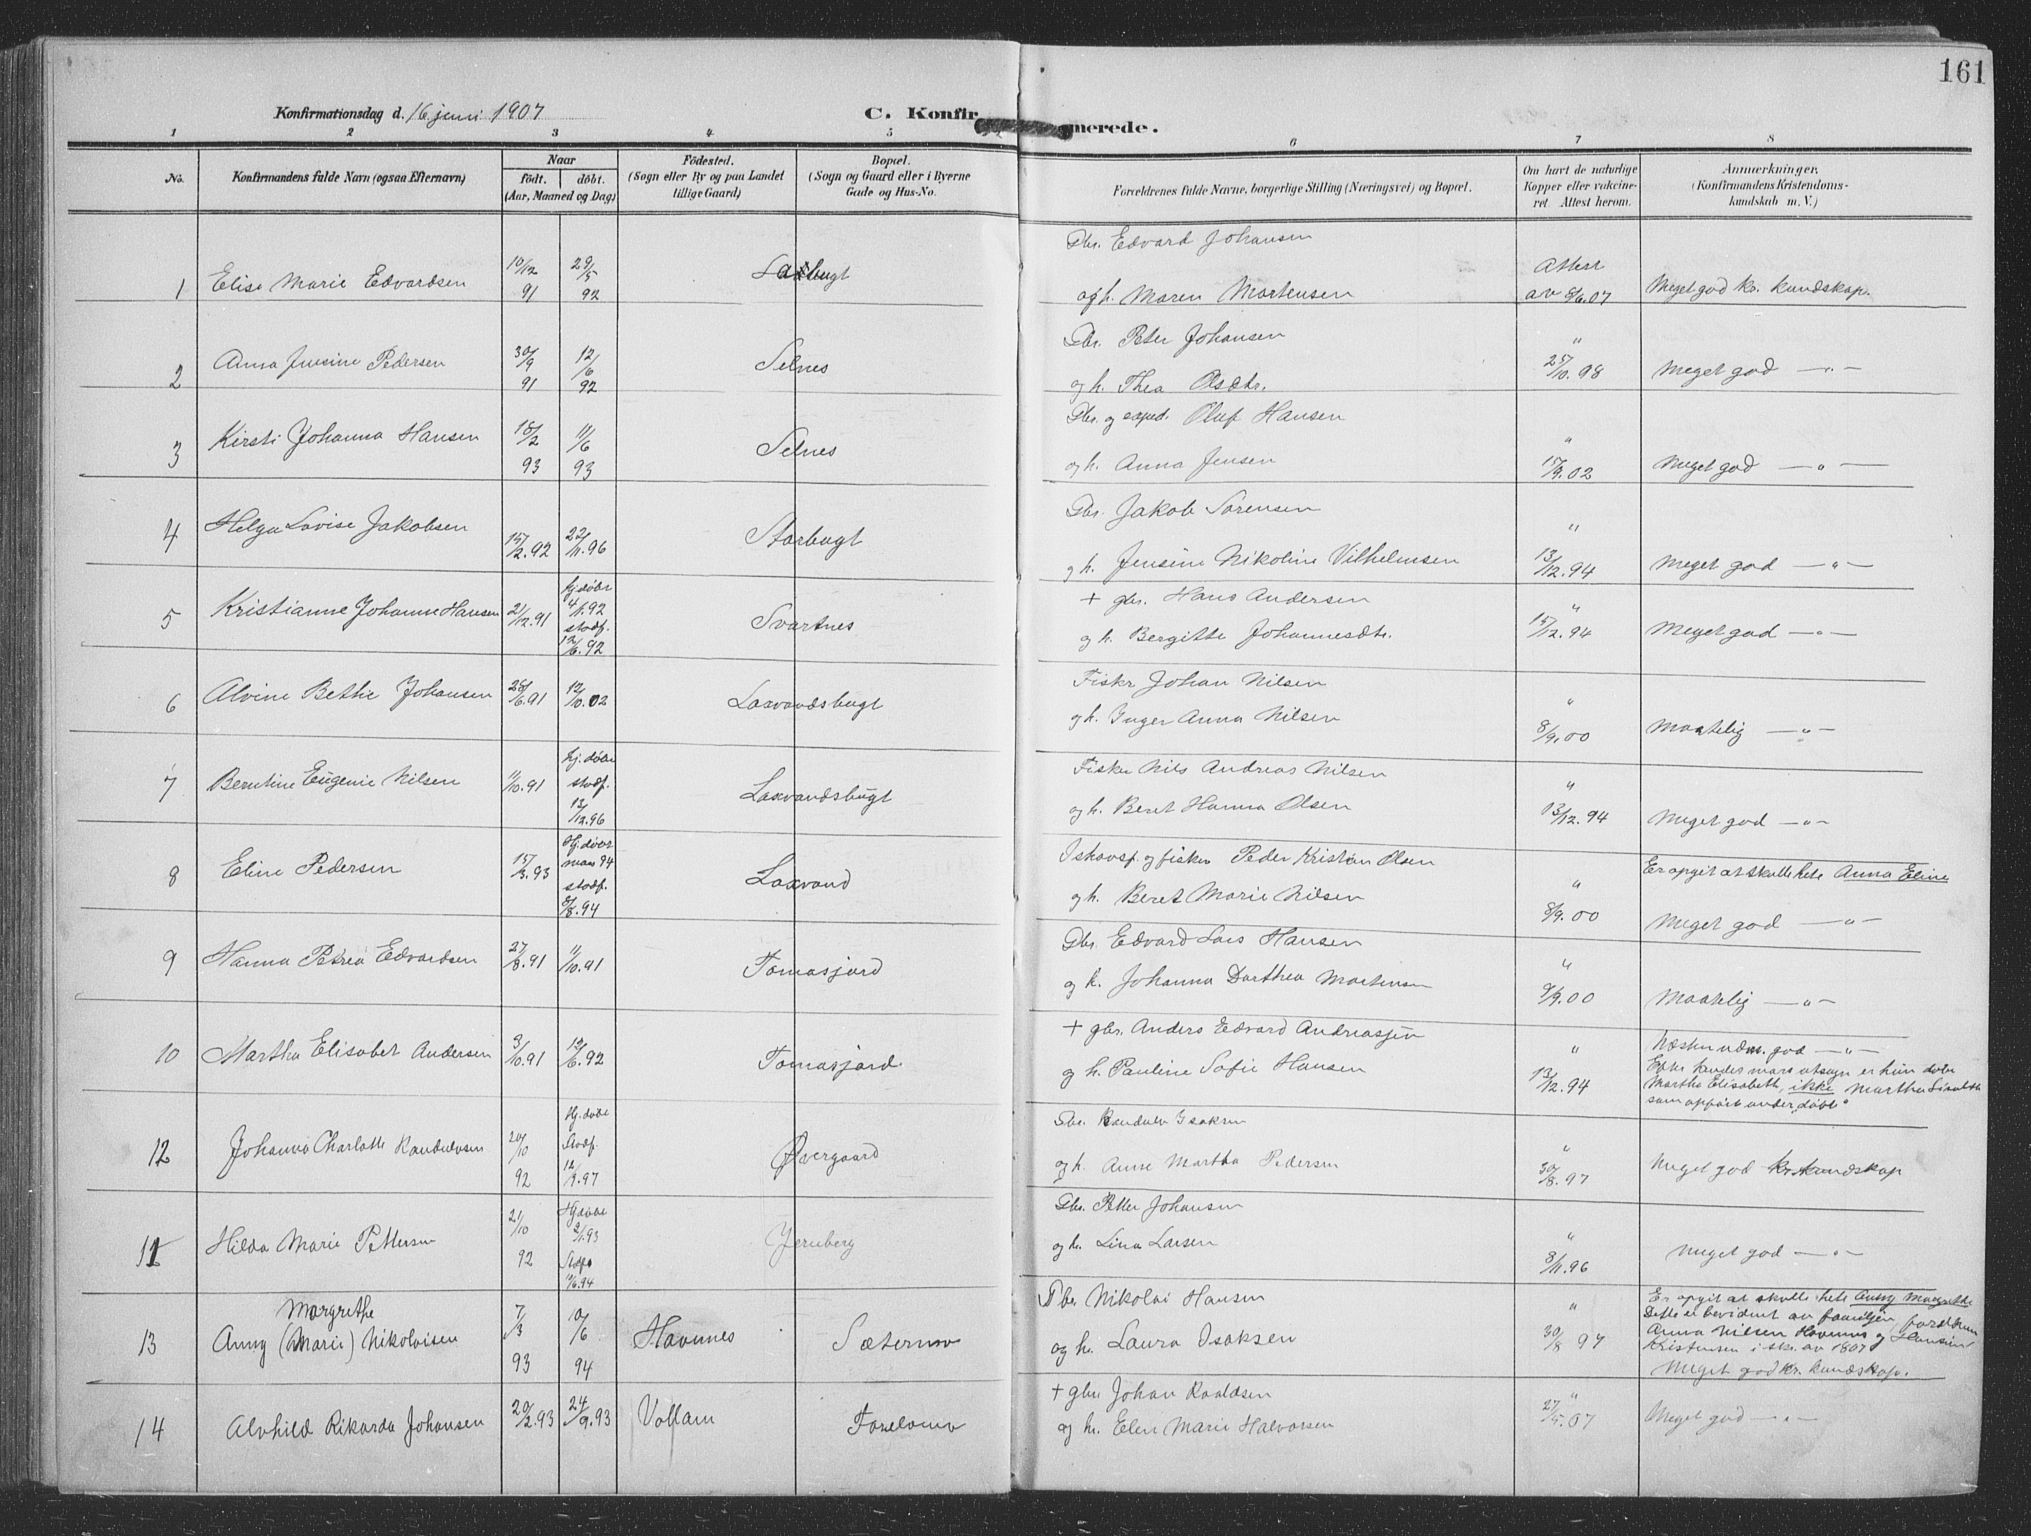 161
Konfirmationsdag d. 16 juni 1907
C. Konfirmerede.
1 2 3 4 5 6 7 8
No.
Konfirmandens fulde Navn (ogsaa Efternavn)
Naar
født. døbt.
(Aar, Maaned og Dag)
Fødested.
(Sogn eller By og paa Landet
tillige Gaard)
Bopæl.
(Sogn og Gaard eller i Byerne
Gade og Hus-No.
Forældrenes fulde Navne, borgerlige Stilling (Næringsvei) og Bopæl.
Om havt de naturlige
Kopper eller vakcine-
ret. Attest herom.
Anmærkninger.
(Konfirmandens Kristendoms-
kundskab m. V.)
1 Elise Marie Edvardsen 10/12 91 29/5 92 Laxbugt
Gbr. Edvard Johansen
og h. Maren Mortensen
Attest
av 8/6.07
Meget god kr. kundskap.
2 Anna Jensine Pedersen 30/9 91 12/6 92 Selnes
Gbr. Peter Johansen
og h. Thea Olsdtr.
" 25/10.98
Meget god —"—
3 Kirsti Johanna Hansen 18/2 93 11/6 93 Selnes
Gbr. og exped. Oluf Hansen
og h. Anna Jensen
" 17/9.02
Meget god —"—
4 Helga Lovise Jakobsen 15/2.92 22/11.96 Storbugt
Gbr. Jakob Sørensen
og h. Jensine Nikoline Vilhelmsen
" 13/12.94
Meget god —"—
5 Kristianne Johanne Hansen 21/12.91 hj. døbt 4/1.92 stadf. 12/6.92 Svartnes
+ gbr. Hans Andersen
og h. Bergitte Johannesdtr.
" 15/12.94
Meget god —"—
6 Alvine Bethie Johansen 28/6.91 12/10.02 Laxvandsbugt
Fisker Johan Nilsen
og h. Inger Anna Nilsen
" 8/9.00
Maatelig —"—
7 Berntine Eugenie Nilsen 11/10.91 hj. døbt stadf. 13/12.96 Laxvandsbugt
Fisker Nils Andreas Nilsen
og h. Beret Hanna Olsen
" 13/12.94
Meget god —"—
8 Eline Pedersen 15/3.93 Hj. døbt mars 94 stadf. 8/8.94 Laxvand
Ishavsf. og fisker Peder Kristian Olsen
og h. Beret Marie Nilsen
" 8/9.00
Er opgit at skulle hete Anna Eline
Meget god —"—
9 Hanna Petrea Edvardsen 27/8.91 11/10.91 Tomasjord
Gbr. Edvard Lars Hansen
og h. Johanna Dorthea Mortensen
" 9/9.00
Maatelig —"—
10 Martha Elisabet Andersen 3/10.91 12/6.92 Tomasjord
+ gbr. Anders Edvard Andreassen
og h. Pauline Sofie Hansen
" 13/12.94
Næsten udm. god —"—
Efter hendes mors utsagn er hun døbt
Martha Elisabeth, ikke Martha
som opført under "døbte"
12 Johanna Charlotte Randulvsen 20/10 92 Hj. døbt Stadf. 12/9.97 Øvergaard
Gbr. Randulv Isaksen
og h. Anne Martha Pedersen
" 30/8.97
Meget god kr. kundskap
11 Hilda Marie Pettersen 21/10 92 Hj. døbt 2/1.93 Stadf. 11/6.94 Jernberg
Gbr. Petter Johansen
og h. Lina Larsen
" 8/11.96
Meget god —"—
Margrethe
13 Anny (Marie) Nikolaisen 7/3 93 10/6 94 Havnnes Sætermo
Gbr. Nikolai Hansen
og h. Laura Isaksen
" 30/8 97
Er opgit at skulle hete Anny Margrethe
Dette er bevidnet av familjen, foruten
Anna Nilsen Havnnes og Hansine
Kristensen i skr. av 1907
Meget god kr. kundskap.
14 Alvhild Rikarda Johansen 20/2.93 24/9.93 Vollam
+ gbr Johan Roaldsen
og h. Elen Marie Halvorsen
" 27/5.07
Meget god —"—